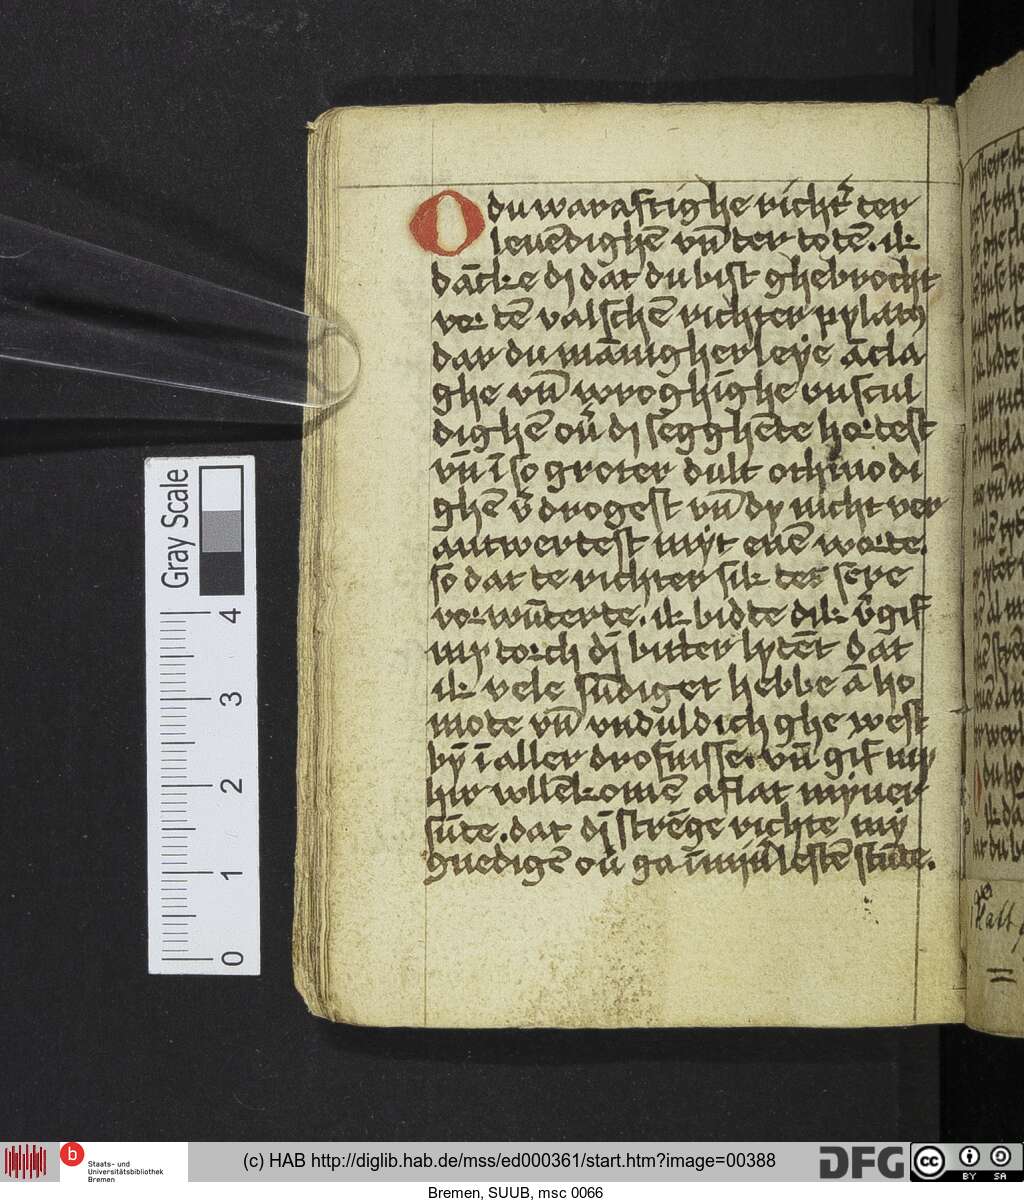 O du waraftighe richt̄ ter
leuēdighē vn̄ ter totē. ik
dācke dj dat du bist ghebrocht
vor tē valschē richter pylatꝰ
dar du mānigherleÿe ācla
ghe vn̄ wroghīghe vnscul
dighē ou̅ dj segghēte hortest
vn̄ ī so groter dult othmodi
ghē v̄ drogest vn̄ dy nicht ver
antwertest mÿt enē worte.
so dat te richter sik tes sere
vorwūterte. ik bidte dik v̄gif
my torch dī bitter lytēt dat
ik vele sūdiget hebbe ā ho
mote vn̄ vnduldich ghe west
bȳ ī aller drofnisse. vn̄ gif my
hir vllēkomē aflat mÿner
sūte. dat dī strēge richte mÿ
gnedigē ou̅ ga ī mÿn̄ lestē stūte.
Gray Scale
4
3
2
1
0
b
Staats- und
Universitätsbibliothek
Bremen
(c) HAB http://diglib.hab.de/mss/ed000361/start.htm?image=00388
DFG
cc
BY SA
Bremen, SUUB, msc 0066